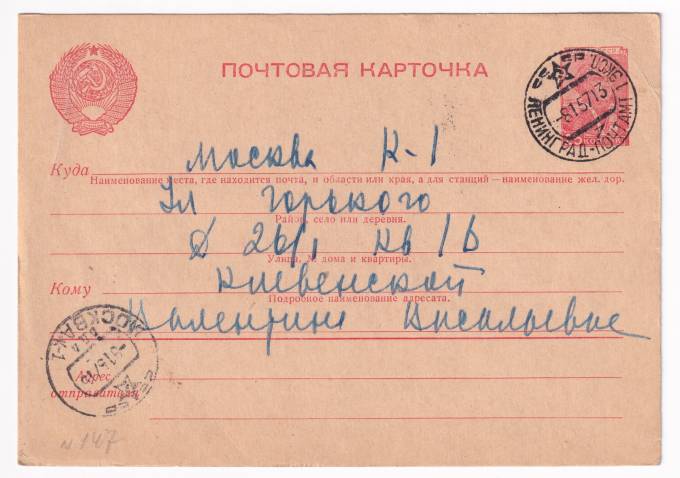 ПОЧТОВАЯ КАРТОЧКА
ЛЕНИНГРАД-ПОЧТАМТ
-81.5713
Куда Москва К-1
Наименование места, где находится почта, и области или края, а для станций — наименование жел. дор.
Ул Горького
Район, село или деревня.
д 26/1 кв 1Б
Улица, № дома и квартиры.
Кому Киевенской
Подробное наименование адресата.
Валентине Васильевне
МОСКВА К-1
Адрес
отправителя
№ 147